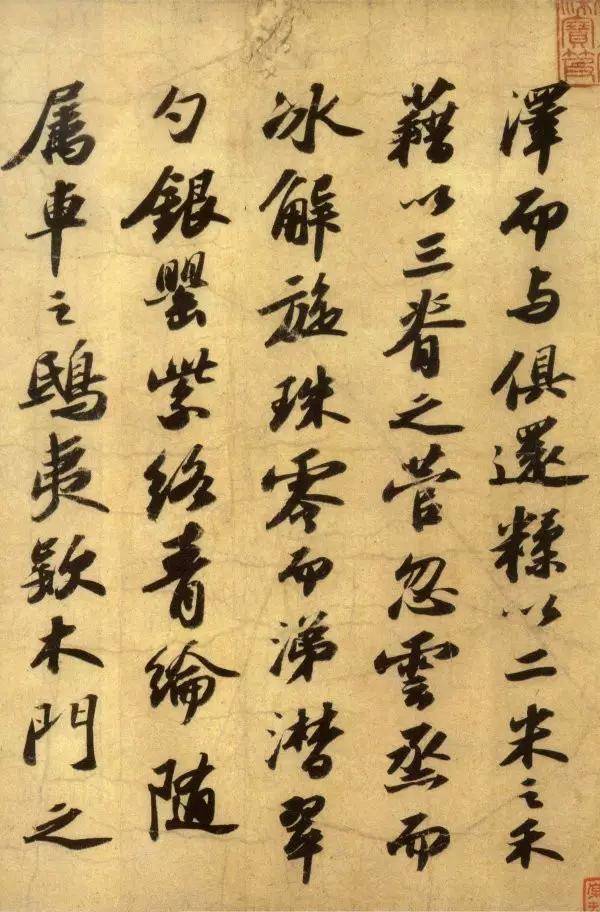 澤而与俱還糅以二米之禾
藉以三脊之菅忽雲烝而
冰解旋珠零而涕潸翠
勺銀罌紫絡青綸随
属車之鴟夷欵木門之